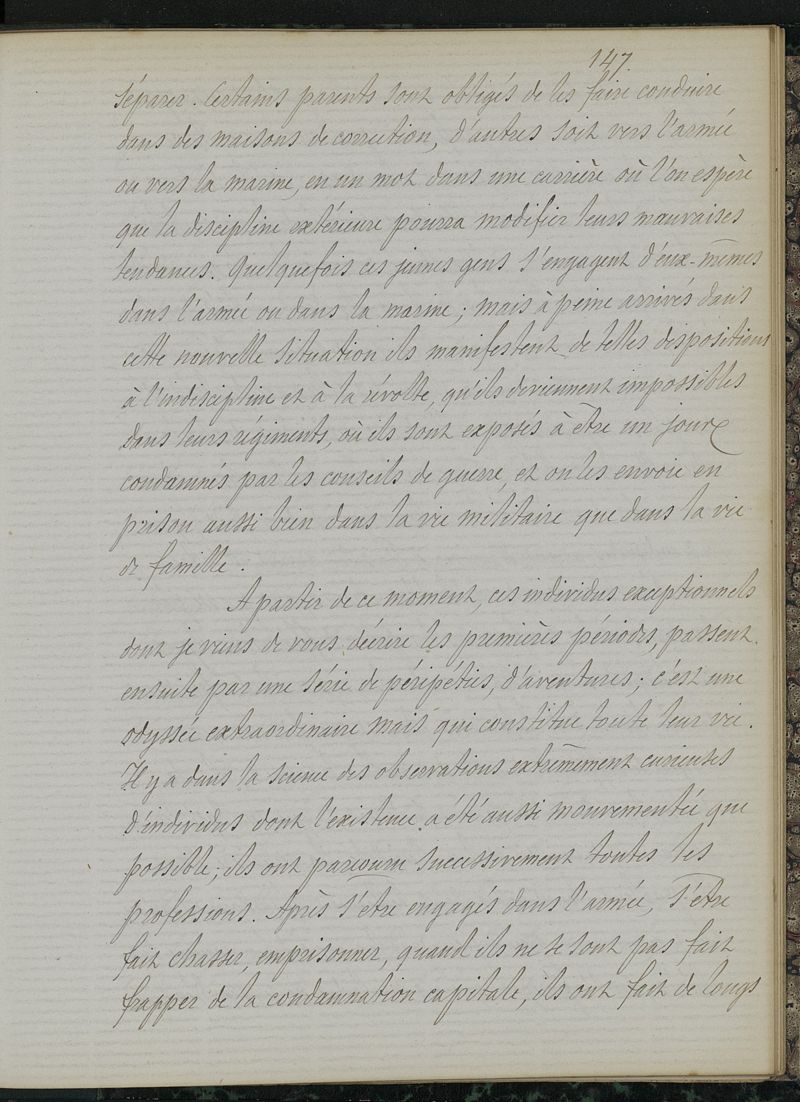 147
séparer. Certains parents sont obligés de les faire conduire
dans des maisons de correction, d'autres soit vers l'armée
ou vers la marine, en un mot dans une carrière où l'on espère
que la discipline extérieure pourra modifier leurs mauvaises
tendances. Quelquefois ces jeunes gens s'engagent d'eux-mêmes
dans l'armée ou dans la marine ; mais à peine arrivés dans
cette nouvelle situation ils manifestent de telles dispositions
à l'indiscipline et à la révolte, qu'ils deviennent impossibles
dans leurs régiments, où ils sont exposés à être un jour
condamnés par les conseils de guerre, et on les envoie en
prison aussi bien dans la vie militaire que dans la vie
de famille.
A partir de ce moment, ces individus exceptionnels
dont je viens de vous décrire les premières périodes, passent
ensuite par une série de péripéties, d'aventures ; c'est une
odyssée extraordinaire mais qui constitue toute leur vie.
Il y a dans la science des observations extrêmement curieuses
d'individus dont l'existence a été aussi mouvementée que
possible ; ils ont parcouru successivement toutes les
professions. Après s'être engagés dans l'armée, s'être
fait chasser, emprisonner, quand ils ne se sont pas fait
frapper de la condamnation capitale, ils ont fait de longs